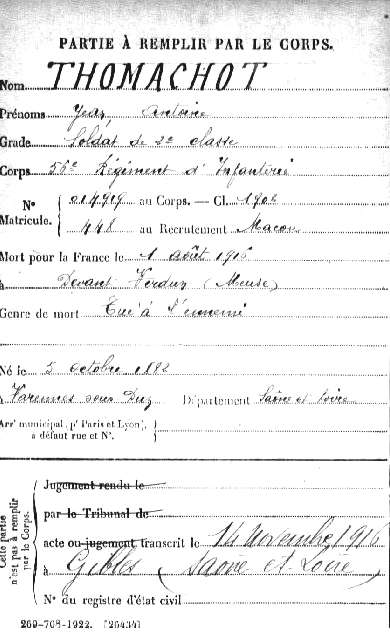 PARTIE À REMPLIR PAR LE CORPS.
Nom THOMACHOT
Prénoms Jean, Antoine
Grade Soldat de 2e classe
Corps 56e Régiment d'Infanterie
Nº Matricule. { 014919 au Corps. — Cl. 1902
448 au Recrutement Macon
Mort pour la France le 1 août 1916
à Devant Verdun (Meuse)
Genre de mort Tué à l'ennemi
Né le 5 octobre 1882
à Varennes sous Dun Département Saône et Loire
Arrt municipal, pr Paris et Lyon),
à défaut rue et Nº.
Cette partie n'est pas à remplir par le Corps.
Jugement rendu le
par le Tribunal de
acte ou jugement transcrit le 14 Novembre 1916
à Gibles (Saône et Loire)
Nº du registre d'état civil
269-708-1922. [26434]